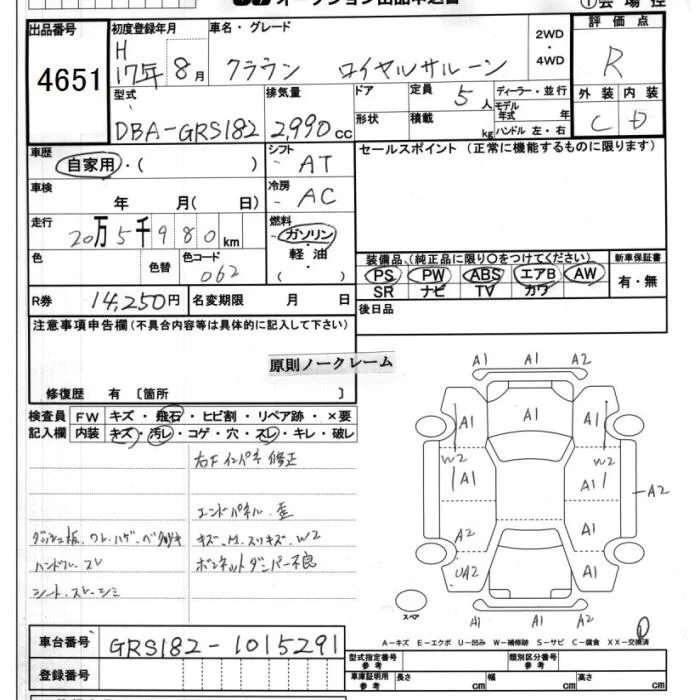 オークション出品申込書
①会場控
出品番号
4651
初度登録年月
H
17年 8月
車名・グレード
クラウン ロイヤルサルーン
2WD
・
4WD
評価点
R
外装 内装
C D
型式
DBA-GRS182
排気量
2,990cc
ドア
形状
定員 5人
積載 kg
ディーラー・並行
モデル年式 年
ハンドル 左・右
車歴
自家用・( )
シフト
AT
車検
年 月( 日)
冷房
AC
走行
20万5千980km
燃料
ガソリン
軽油
( )
色
色替
色コード
062
R券 14,250円
名変期限 月 日
セールスポイント(正常に機能するものに限ります)
装備品(純正品に限り○をつけてください)
新車保証書
PS PW ABS エアB AW
有・無
SR ナビ TV カワ
後日品
注意事項申告欄(不具合内容等は具体的に記入して下さい)
原則ノークレーム
修復歴 有〔箇所 〕
検査員
記入欄
FW キズ・飛石・ヒビ割・リペア跡・×要
内装 キズ・汚レ・コゲ・穴・スレ・キレ・破レ
右Fインパネ修正
エンドパネル歪
ダッシュ板、ワレ・ハゲ・ベタツキ
キズ、M、スリキズ、W2
ハンドル・スレ
ボンネットダンパー不良
シート、スレ・シミ
A1 A1 A2
A1 A1 A1
W2 W2
A1 A1
A2
A2 A1
UA2 A1
A1 A1
スペア
①
A-キズ E-エクボ U-凹み W-補修跡 S-サビ C-腐食 XX-交換済
車台番号 GRS182-1015291
登録番号
型式指定番号
参考
類別区分番号
参考
車庫証明用
参考
長さ cm
幅 cm
高さ cm